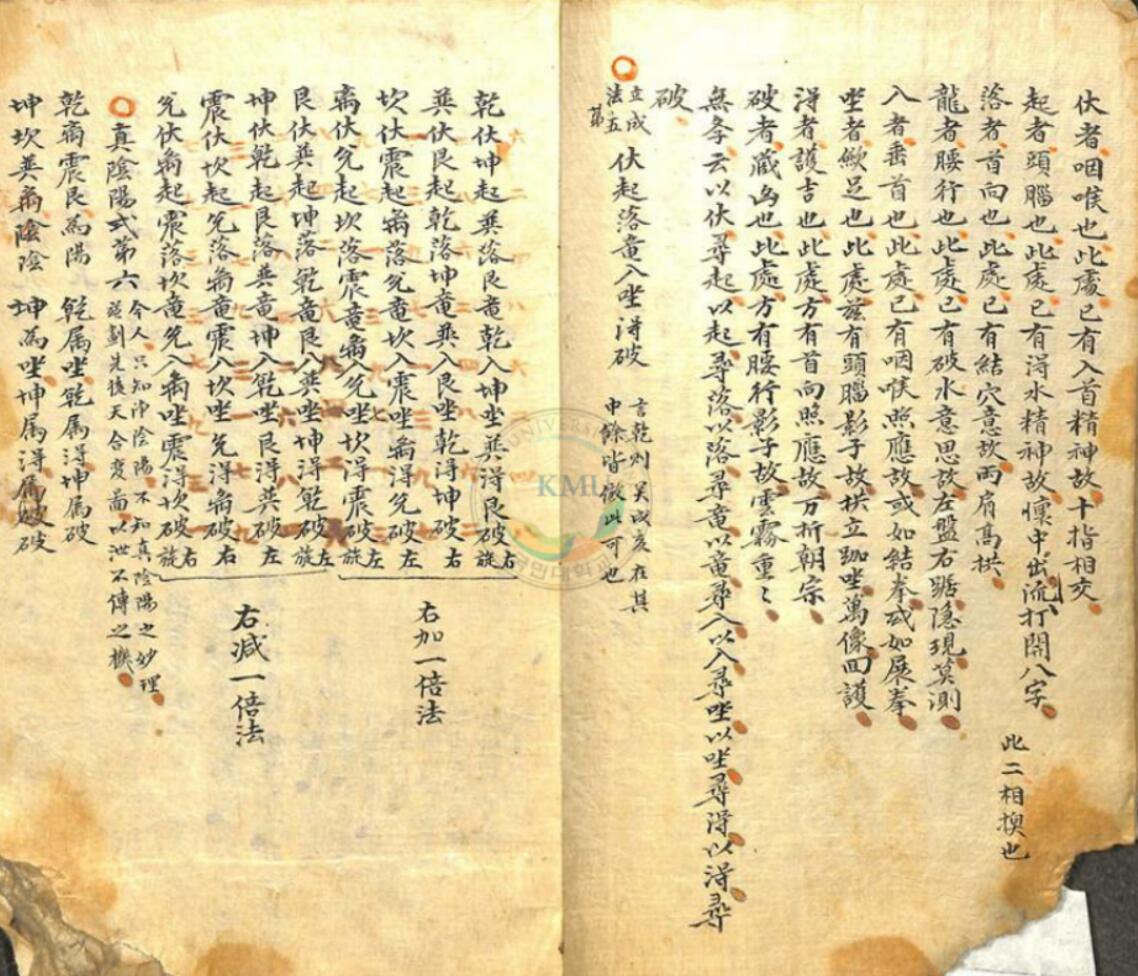 伏者咽喉也此處已有入首精神故十指相交
起者頭腦也此處已有淂水精神故懷中出流打開八字
此二相換也
落者首向也此處已有結穴意故兩肩高拱
龍者腰行也此處已有破水意思故左盤右踞隱現莫測
入者垂首也此處已有咽喉照應故或如結拳或如展拳
坐者歛足也此處玆有頭腦影子故拱立跏坐萬像回護
淂者護吉也此處方有首向照應故万折朝宗
破者蔵凶也此處方有腰行影子故雲霧重〻
無季云以伏尋起以起尋落以落尋竜以竜尋入以入尋坐以坐尋淂以淂尋
破
立成
法五
第
伏起落竜入坐淂破
言乾則
在其
中餘皆倣此可也
乾伏坤起巽落艮竜乾入坤坐巽淂艮破右旋
巽伏艮起乾落坤竜巽入艮坐乾淂坤破右
坎伏震起离落兌竜坎入震坐离淂兌破左
离伏兌起坎落震竜离入兌坐坎淂震破左旋
右加一倍法
艮伏巽起坤落乾竜艮入巽坐坤淂乾破左旋
坤伏乾起艮落巽竜坤入乾坐艮淂巽破左
震伏坎起兌落离竜震入坎坐兌淂离破右
兌伏离起震落坎竜兌入离坐震淂坎破右旋
右減一倍法
真陰陽式第六
今人只知沖陰陽不知真陰陽之妙理
玆劃先後天合変啚以泄不傳之機
乾离震艮為陽 乾属坐乾属淂坤属破
坤坎巽兌陰 坤為坐坤属淂属破
KMU
UNIVERSITY
국민대학교